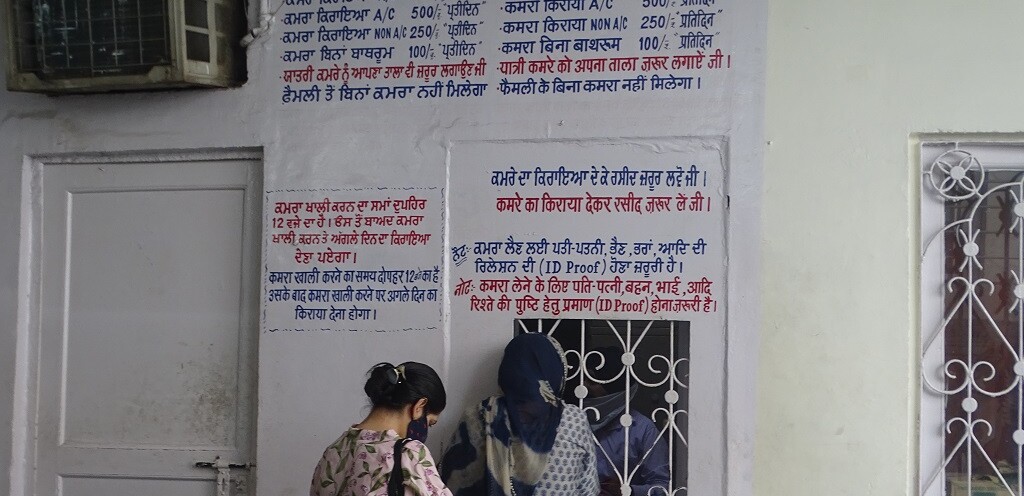 ਕਮਰਾ ਕਿਰਾਇਆ A/C 500/- "ਪ੍ਰਤੀਦਿਨ"
ਕਮਰਾ ਕਿਰਾਇਆ NON A/C 250/- "ਪ੍ਰਤੀਦਿਨ"
ਕਮਰਾ ਬਿਨਾਂ ਬਾਥਰੂਮ 100/- "ਪ੍ਰਤੀਦਿਨ"
ਯਾਤਰੀ ਕਮਰੇ ਨੂੰ ਆਪਣਾ ਤਾਲਾ ਹੀ ਜ਼ਰੂਰ ਲਗਾਉਣ ਜੀ
ਫ਼ੈਮਲੀ ਤੋਂ ਬਿਨਾਂ ਕਮਰਾ ਨਹੀਂ ਮਿਲੇਗਾ
कमरा किराया A/C 500/- "प्रतिदिन"
कमरा किराया NON A/C 250/- "प्रतिदिन"
कमरा बिना बाथरूम 100/- "प्रतिदिन"
यात्री कमरे को अपना ताला ज़रूर लगाऐं जी।
फैमली के बिना कमरा नहीं मिलेगा।
ਕਮਰਾ ਖਾਲੀ ਕਰਨ ਦਾ ਸਮਾਂ ਦੁਪਹਿਰ
12 ਵਜੇ ਦਾ ਹੈ। ਓਸ ਤੋਂ ਬਾਅਦ ਕਮਰਾ
ਖਾਲੀ ਕਰਨ ਤੇ ਅੱਗਲੇ ਦਿਨ ਦਾ ਕਿਰਾਇਆ
ਦੇਣਾ ਪਏਗਾ।
कमरा खाली करने का समय दोपहर 12 बजे का है
उसके बाद कमरा खाली करने पर अगले दिन का
किराया देना होगा।
ਕਮਰੇ ਦਾ ਕਿਰਾਇਆ ਦੇ ਕੇ ਰਸੀਦ ਜ਼ਰੂਰ ਲਵੋ ਜੀ।
कमरे का किराया देकर रसीद ज़रूर लें जी।
ਨੋਟ:- ਕਮਰਾ ਲੈਣ ਲਈ ਪਤੀ-ਪਤਨੀ, ਭੈਣ, ਭਰਾਂ, ਆਦਿ ਦੀ
ਰਿਲੇਸ਼ਨ ਦੀ (ID Proof) ਹੋਣਾ ਜ਼ਰੂਰੀ ਹੈ।
नोट:- कमरा लेने के लिए पति-पत्नी, बहन, भाई, आदि
रिश्ते की पुष्टि हेतु प्रमाण (ID Proof) होना ज़रूरी है।